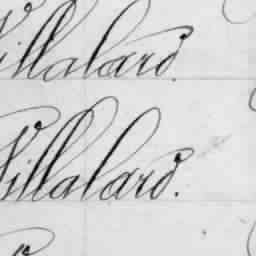 Villalard.
Villalard.